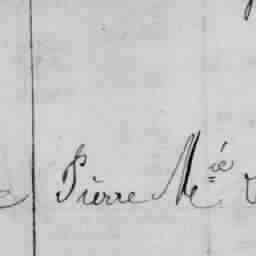 Pierre M^ie